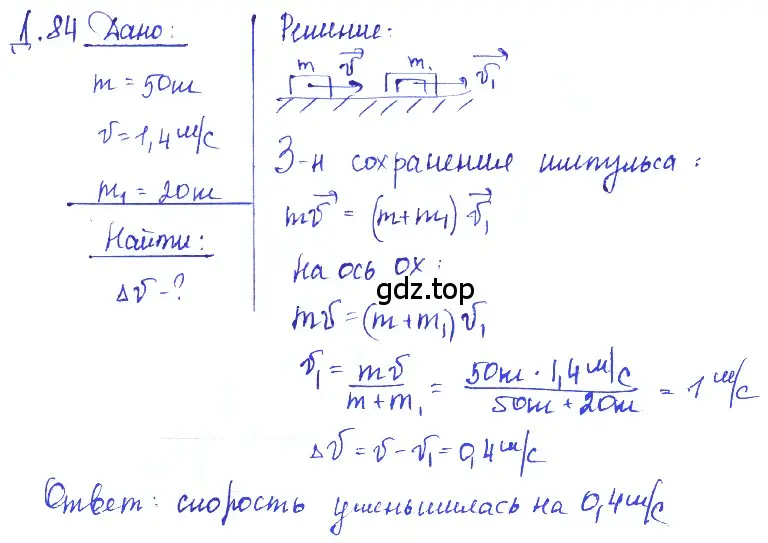 Д.84 Дано:
m = 50т
v = 1,4 м/с
m₁ = 20т
Найти:
Δv - ?
Решение:
m v⃗ m₁ v⃗₁
З-н сохранения импульса:
mv⃗ = (m+m₁) v⃗₁
на ось ОХ:
gdz.top
mv = (m+m₁)v₁
v₁ = mv / (m+m₁) = 50т · 1,4 м/с / (50т + 20т) = 1 м/с
Δv = v - v₁ = 0,4 м/с
Ответ: скорость уменьшилась на 0,4 м/с